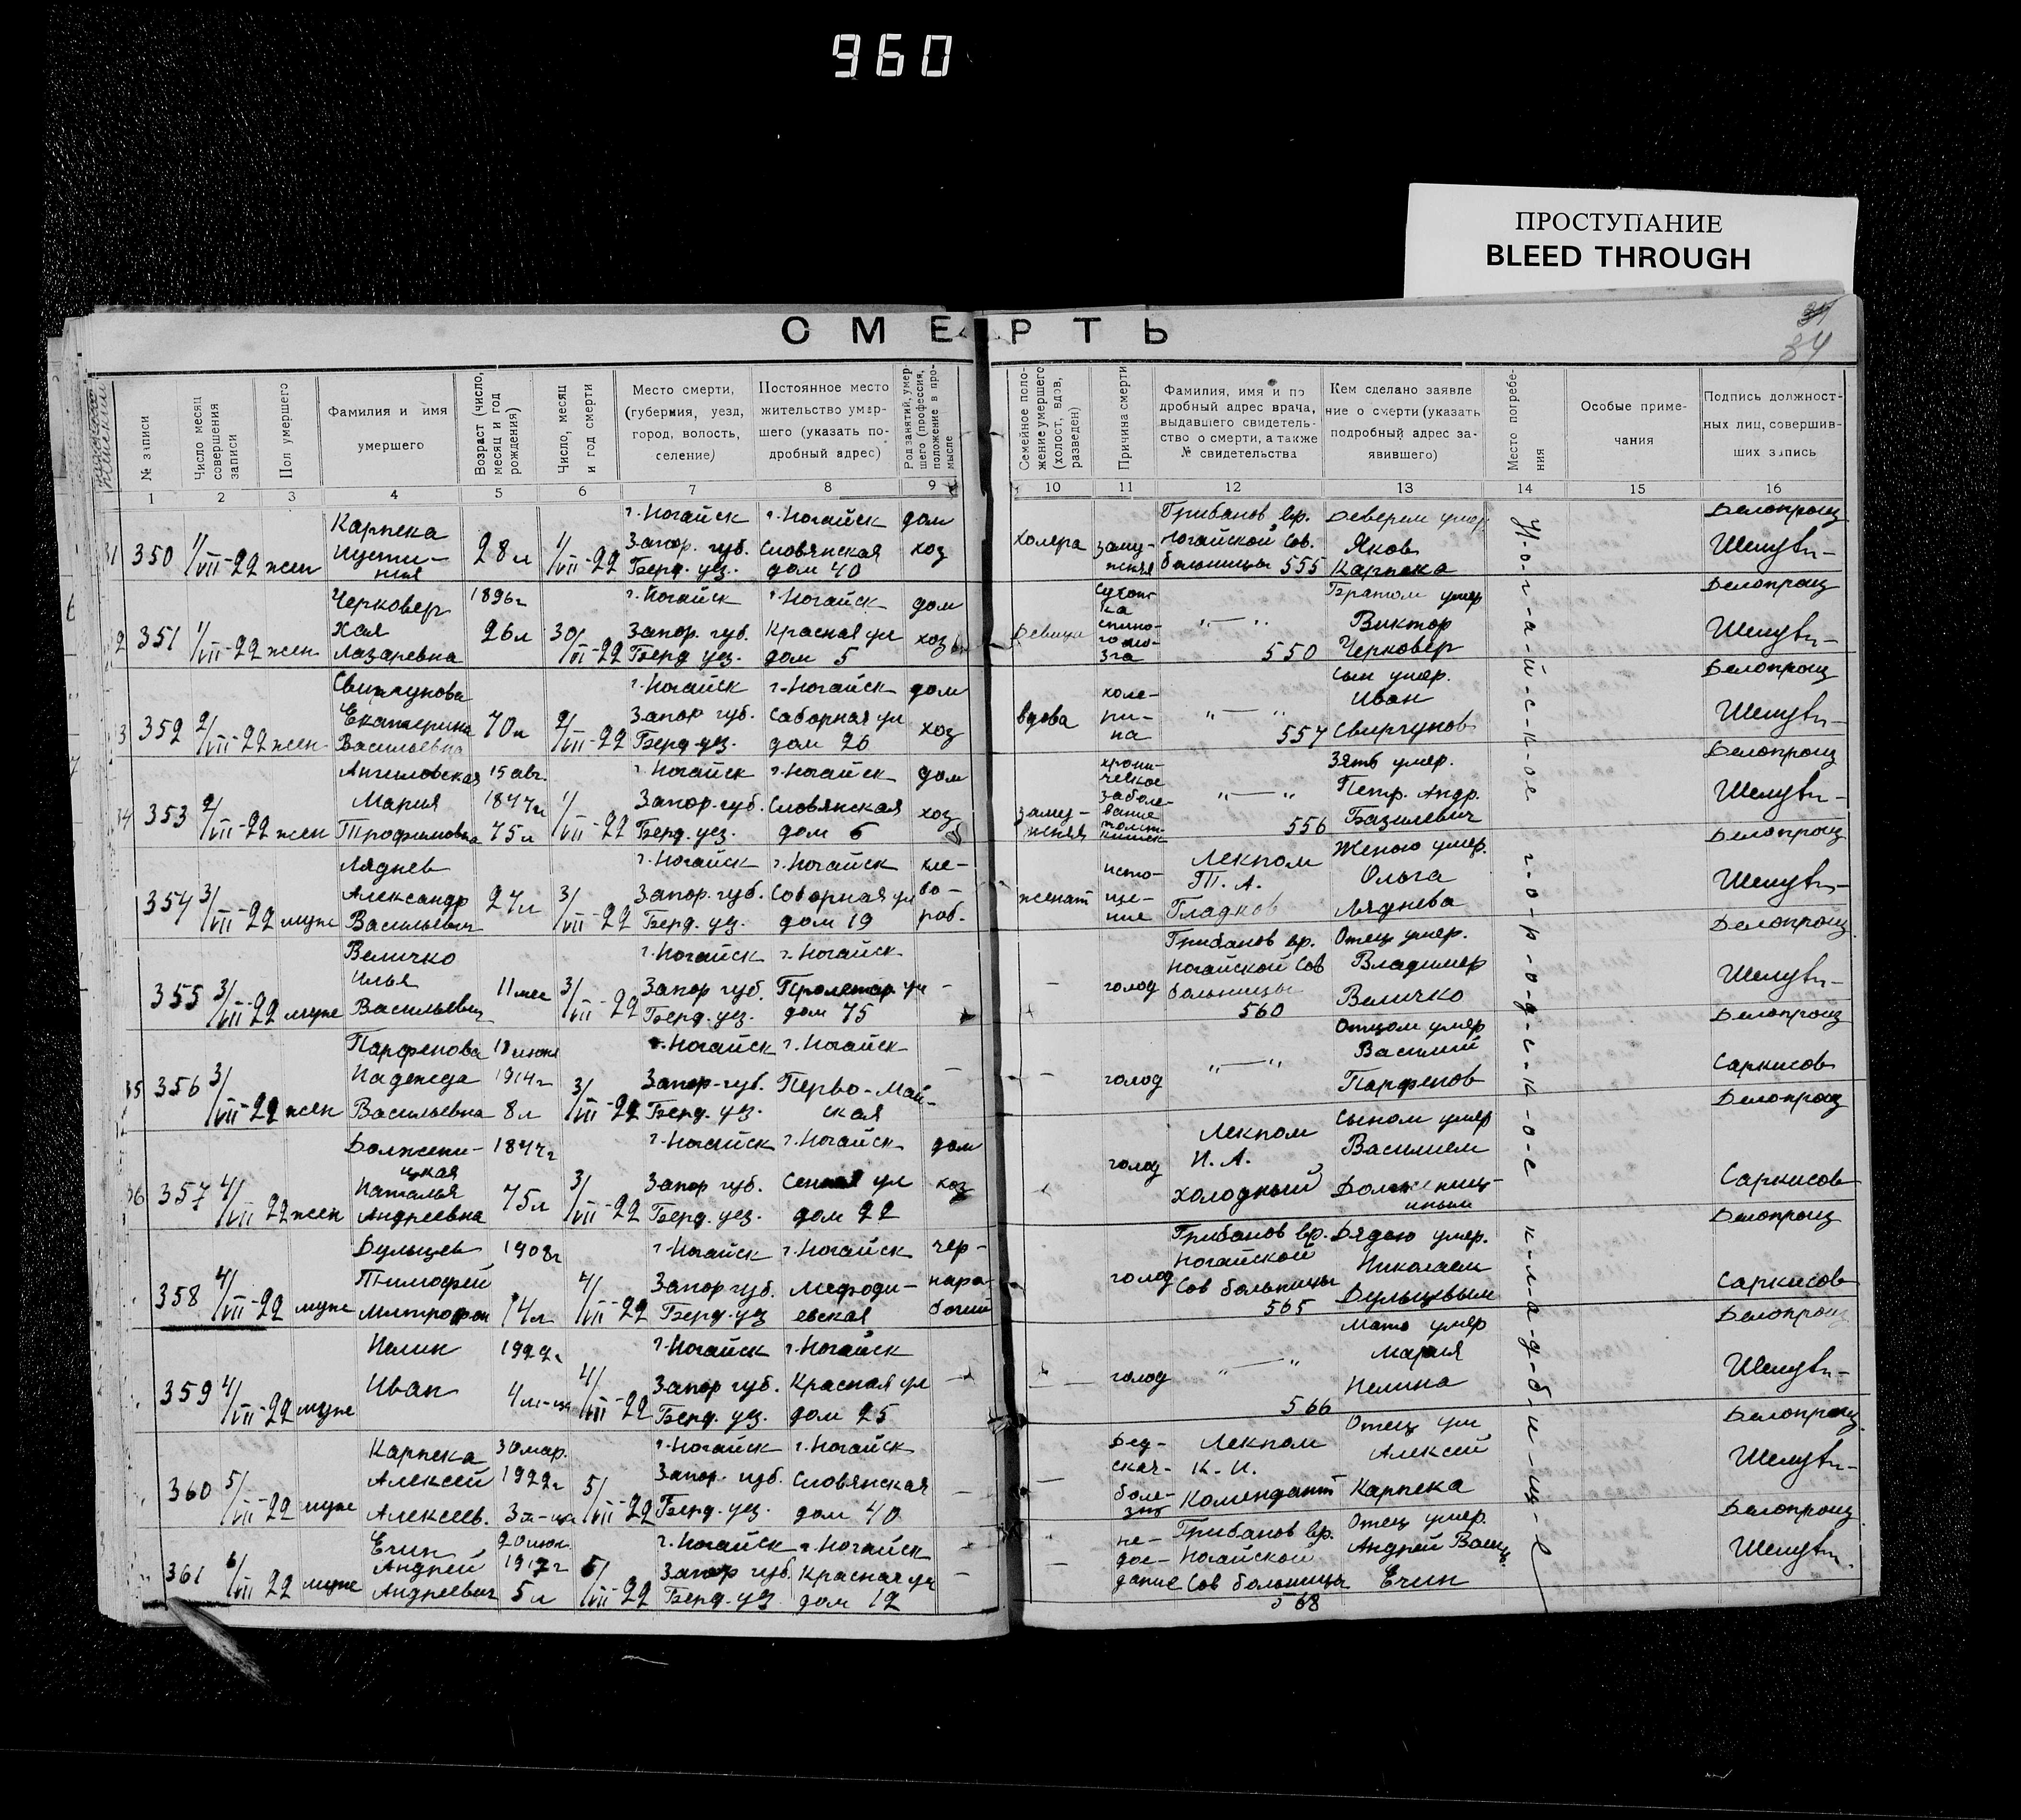 960
ПРОСТУПАНИЕ
BLEED THROUGH
СМЕРТЬ
34
№ записи
Число месяц совершения записи
Пол умершего
Фамилия и имя умершего
Возраст (число, месяц и год рождения)
Число, месяц и год смерти
Место смерти, (губерния, уезд, город, волость, селение)
Постоянное место жительство умершего (указать подробный адрес)
Род занятий, умершего (профессия, положение в промысле
Семейное положение умершего (холост, вдов, разведен)
Причина смерти
Фамилия, имя и подробный адрес врача, выдавшего свидетельство о смерти, а также № свидетельства
Кем сделано заявление о смерти (указать подробный адрес заявившего)
Место погребения
Особые примечания
Подпись должностных лиц, совершивших запись
1 2 3 4 5 6 7 8 9 10 11 12 13 14 15 16
350 1/VII-22 жен Карпека 28 л 1/VII-22 г. Ногайск Запор. губ. Берд. уез. г. Ногайск Словянская дом 40 дом хоз
холера замужняя Грибанов вр. Ногайской Сов. больницы 555 Деверем умер Яков Карпека Белопрощ
351 1/VII-22 жен Черковер Хая Лазаревна 1896 г 26 л 30/VI-22 г. Ногайск Запор. губ. Берд уез. г. Ногайск Красная ул дом 5 дом хоз
Девица Сухотка спинного мозга —"— 550 Братом умер Виктор Черковер Белопрощ
352 2/VII-22 жен Свиргунова Екатерина Васильевна 70 л 2/VII-22 г. Ногайск Запор губ. Берд уез. г. Ногайск Саборная ул дом 26 дом хоз
вдова холерина "—" 557 Сын умер. Иван Свиргунов Белопрощ
353 2/VII-22 жен Ангиловская Мария Трофимовна 15 авг. 1847 г 75 л 1/VII-22 г. Ногайск Запор. губ. Берд. уез. г. Ногайск Словянская дом 6 дом хоз
замужняя хроническое заболевание "—" 556 Зять умер. Петр. Андр. Базилевич Белопрощ
354 3/VII-22 муж Ляднев Александр Васильевич 27 л 3/VII-22 г. Ногайск Запор. губ. Берд. уез. г. Ногайск Соборная ул дом 19 хлебороб.
женат истощение Лекпом Гладков Женою умер. Ольга Ляднева Белопрощ
355 3/VII-22 муж Величко Илья Васильевич 11 мес 3/VII-22 г. Ногайск Запор губ. Берд. уез. г. Ногайск Пролетар. ул дом 75 -
- голод Грибанов вр. Ногайской Сов больницы 560 Отец умер. Владимер Величко Белопрощ
356 3/VII-22 жен Парфенова Надежда Васильевна 1914 г 8 л 3/VII-22 г. Ногайск Запор-губ. Берд. уз. г. Ногайск Перво-Майская -
- голод —"— Отцом умер Василий Парфенов Саркисов Белопрощ
357 4/VII 22 жен Наталья Андреевна 1847 г 75 л 3/VII-22 г. Ногайск Запор губ. Берд. уез. г. Ногайск ул дом 22 дом хоз
голод Лекпом И. А. Холодный Сыном умер Василием Саркисов Белопрощ
358 4/VII-22 муж Дульцев Тимофей Митрофан 1908 г 14 л 4/VII-22 г. Ногайск Запор губ. Берд. уез г. Ногайск Мефодиевская чернорабочий
голод Грибанов вр. Ногайской Сов больницы 565 Дядею умер. Николаем Дульцевым Саркисов Белопрощ
359 4/VII-22 муж Нелин Иван 1922 г 4 м-ца 4/VII-22 г. Ногайск Запор губ. Берд. уез. г. Ногайск Красная ул дом 25 -
- голод "—" 566 Мать умер Мария Нелина Белопрощ
360 5/VII-22 муж Карпека Алексей Алексеев. 30 мар. 1922 г 3 м-ца 5/VII-22 г. Ногайск Запор. губ. Берд. уез. г. Ногайск Словянская дом 40 -
- Лекпом К. И. Комендант Отец ум Алексей Карпека Белопрощ
361 6/VII 22 муж Ечин Андрей Андреевич 1917 г 5 л 5/VII 22 г. Ногайск Запор губ. Берд. уз. г. Ногайск Красная ул дом 12 -
- недоедание Грибанов вр. Ногайской Сов больницы 568 Отец умер. Андрей Ечин
-г-о-р-о-д-с-к-о-е к-л-а-д-б-и-щ-е